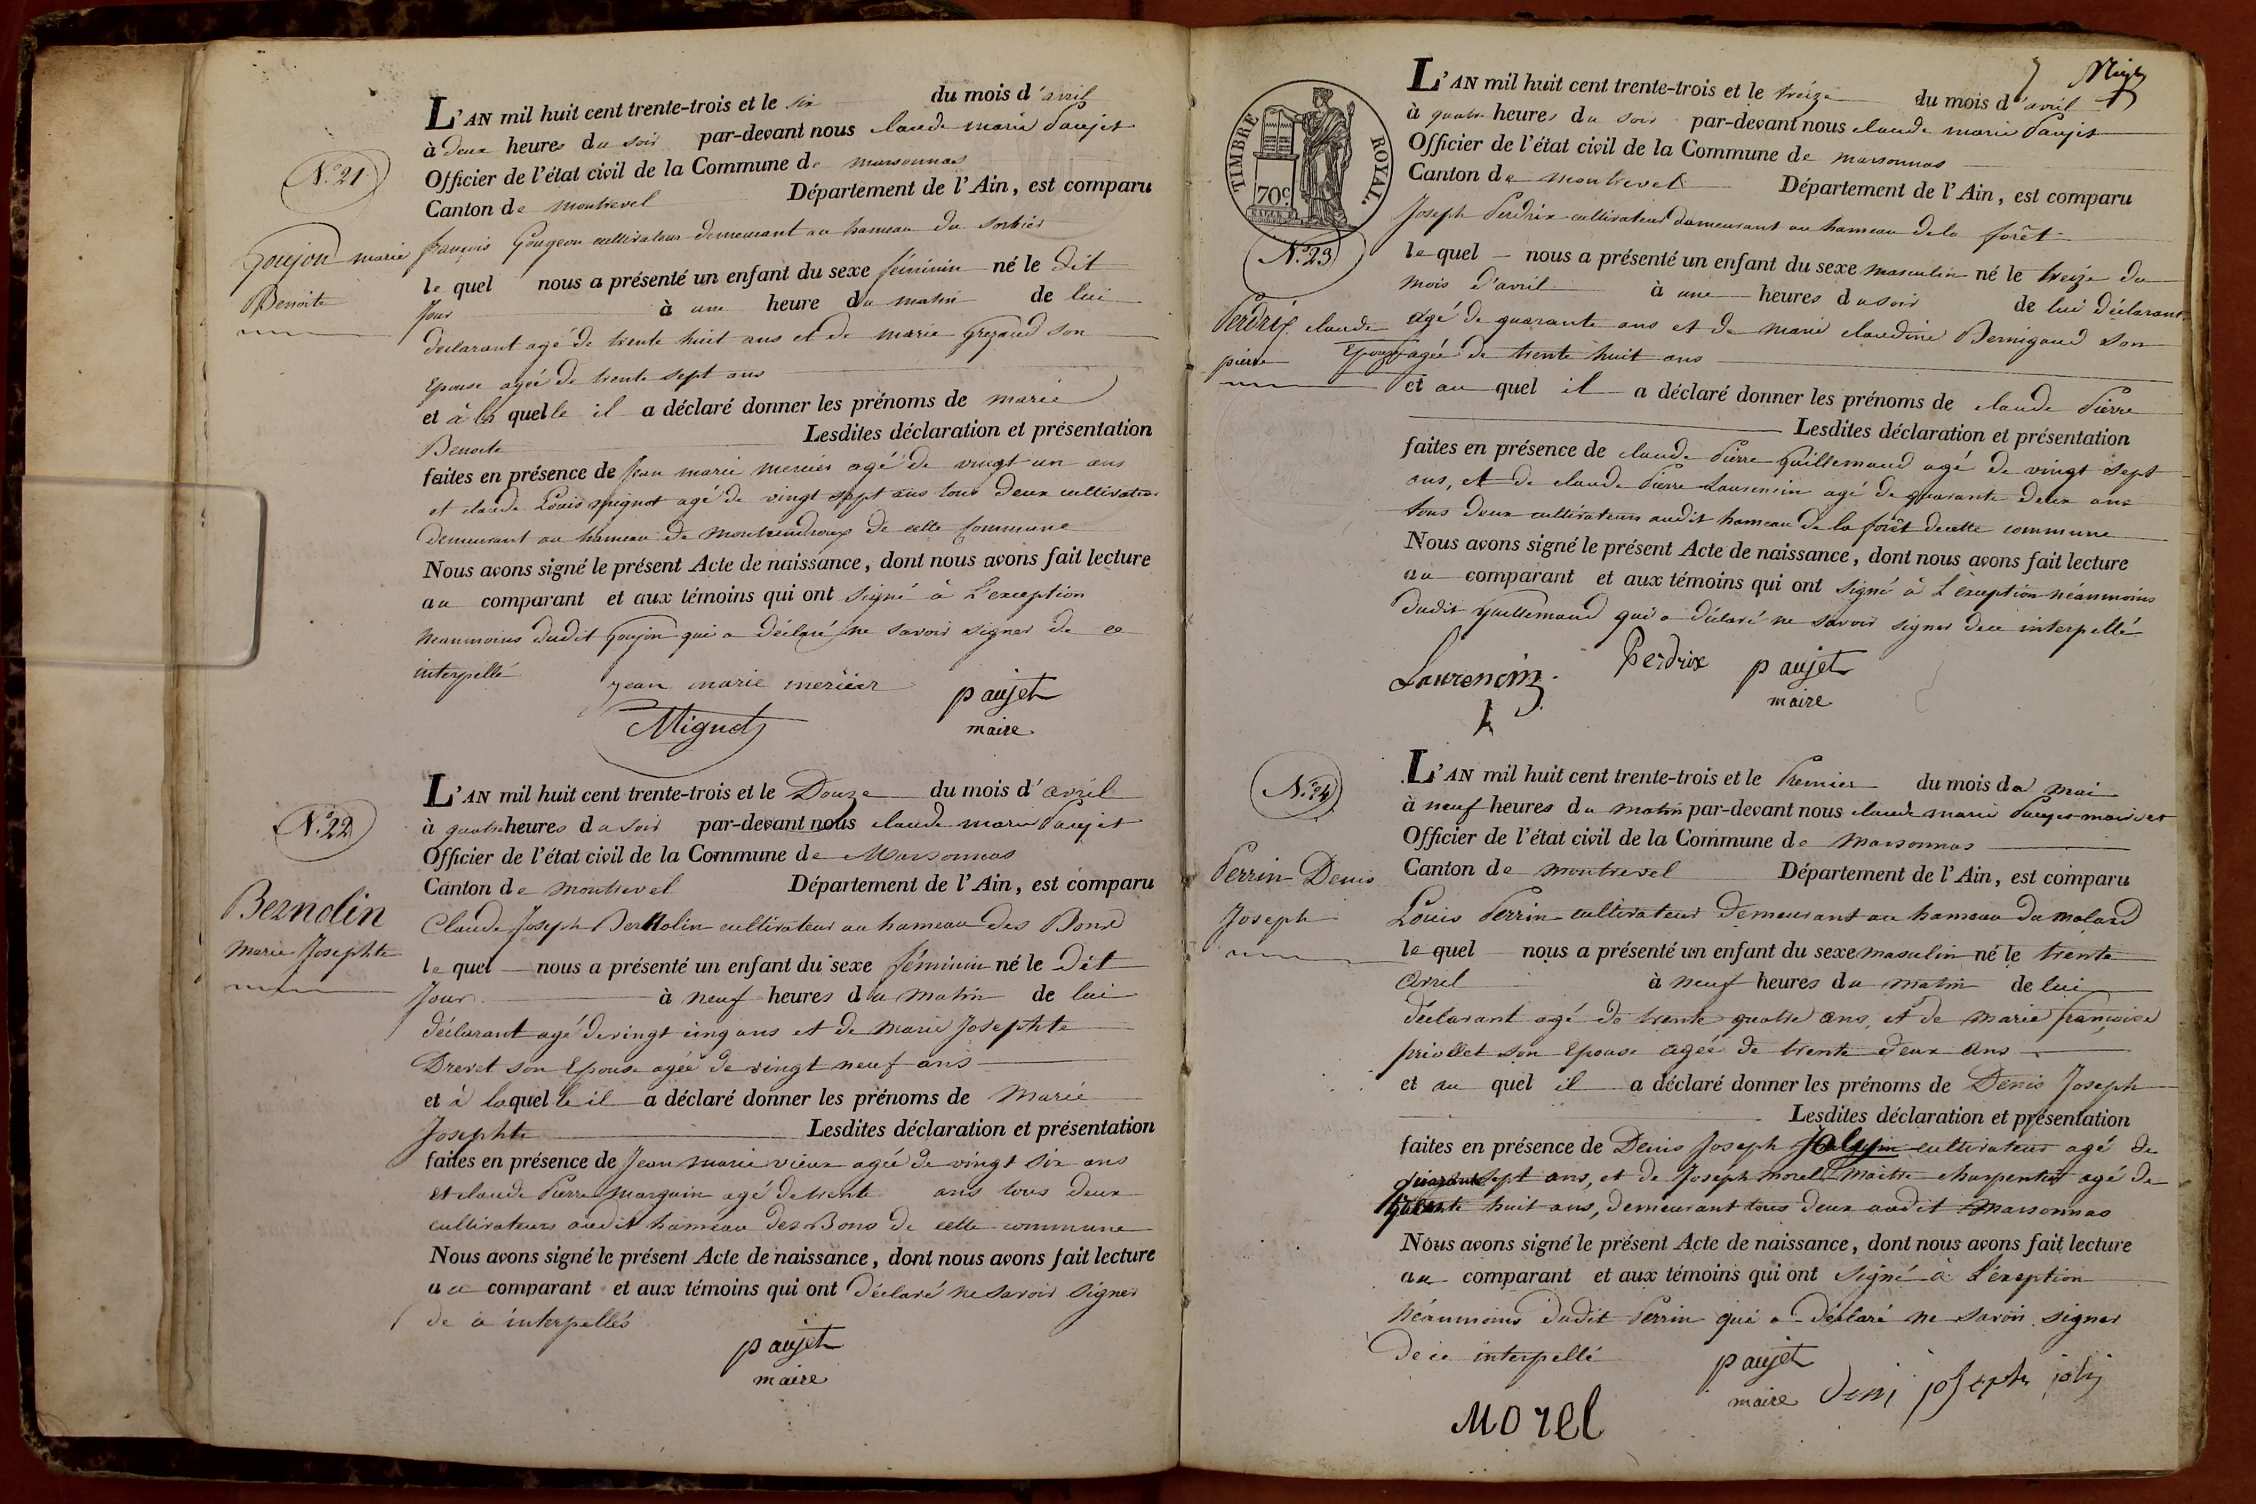 N.° 21
Goujon marie
Benoite
L'AN mil huit cent trente-trois et le six du mois d'avril
à deux heures du soir par-devant nous claude marie Paujet
Officier de l'état civil de la Commune de marsonnas
Canton de montrevel Département de l'Ain, est comparu
françois Gougeon cultivateur demeurant au hameau du Sorbier
le quel nous a présenté un enfant du sexe féminin né le dit
Jour à une heure du matin de lui
déclarant agé de trente huit ans et de marie Grezaud son
Epouse agée de trente sept ans
et à la quelle il a déclaré donner les prénoms de marie
Benoite Lesdites déclaration et présentation
faites en présence de Jean marie mercier agé de vingt un ans
et claude Louis mignot agé de vingt sept ans tous deux cultivateurs
demeurant au hameau de de cette Commune
Nous avons signé le présent Acte de naissance, dont nous avons fait lecture
au comparant et aux témoins qui ont signé à L'exception
néanmoins dudit Goujon qui a déclaré ne savoir signer de ce
interpellé
jean marie mercier paujet
Mignot maire
N.° 22
Bernolin
Marie Josephte
L'AN mil huit cent trente-trois et le Douze du mois d'avril
à quatre heures du soir par-devant nous claude marie Paujet
Officier de l'état civil de la Commune de Marsonnas
Canton de montrevel Département de l'Ain, est comparu
Claude Joseph Bernolin cultivateur au hameau des Bons
le quel nous a présenté un enfant du sexe féminin né le Dit
Jour à neuf heures du matin de lui
déclarant agé de vingt cinq ans et de Marie Josephte
Drevet son Epouse agée de vingt neuf ans
et à laquelle il a déclaré donner les prénoms de Marie
Josephte Lesdites déclaration et présentation
faites en présence de Jean marie vieux agé de vingt six ans
et claude Pierre Marguin agé de trente ans tous deux
cultivateurs audit hameau des Bons de cette commune
Nous avons signé le présent Acte de naissance, dont nous avons fait lecture
au comparant et aux témoins qui ont déclaré ne savoir signer
de ce interpellés
paujet
maire
TIMBRE ROYAL.
70c.
7
N.° 23
Perdrix claude
pierre
L'AN mil huit cent trente-trois et le treize du mois d'avril
à quatre heures du soir par-devant nous claude marie Paujet
Officier de l'état civil de la Commune de marsonnas
Canton de montrevel Département de l'Ain, est comparu
Joseph Perdrix cultivateur demeurant au hameau de la forêt
le quel nous a présenté un enfant du sexe masculin né le treize du
mois d'avril à une heures du soir de lui déclarant
agé de quarante ans et de marie claudine Bernigaud son
Epouse agée de trente huit ans
et au quel il a déclaré donner les prénoms de claude Pierre
Lesdites déclaration et présentation
faites en présence de claude Pierre Guillemaud agé de vingt sept
ans, et de claude Pierre Laurencin agé de quarante deux ans
tous deux cultivateurs audit hameau de la forêt de cette commune
Nous avons signé le présent Acte de naissance, dont nous avons fait lecture
au comparant et aux témoins qui ont signé à L'exception néanmoins
dudit Guillemaud qui a déclaré ne savoir signer de ce interpellé
Laurencin Perdrix paujet
maire
N.° 24
Perrin Denis
Joseph
L'AN mil huit cent trente-trois et le Premier du mois de mai
à neuf heures du matin par-devant nous claude marie Paujet maire et
Officier de l'état civil de la Commune de marsonnas
Canton de montrevel Département de l'Ain, est comparu
Louis Perrin cultivateur demeurant au hameau du molard
le quel nous a présenté un enfant du sexe masculin né le trente
avril à neuf heures du matin de lui
déclarant agé de trente quatre ans, et de marie françoise
priollet son Epouse agée de trente deux ans
et au quel il a déclaré donner les prénoms de Denis Joseph
Lesdites déclaration et présentation
faites en présence de Denis Joseph cultivateur agé de
quarante sept ans, et de Joseph morel Maître charpentier agé de
huit ans, demeurant tous deux audit Marsonnas
Nous avons signé le présent Acte de naissance, dont nous avons fait lecture
au comparant et aux témoins qui ont signé à L'exception
néanmoins dudit Perrin qui a déclaré ne savoir signer
de ce interpellé
paujet
maire Deni joseph joly
Morel